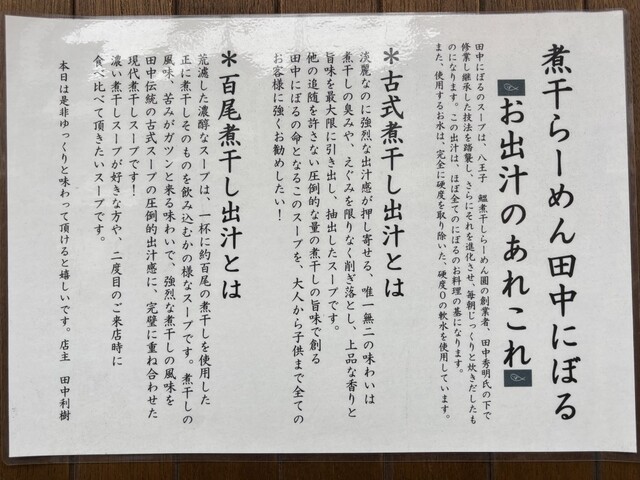 煮干らーめん田中にぼる
お出汁のあれこれ
田中にぼるのスープは、八王子　鰮煮干しらーめん圓の創業者、田中秀明氏の下で
修業し継承した技法を踏襲し、さらにそれを進化させ、毎朝じっくりと炊きだしたも
のになります。この出汁は、ほぼ全てのにぼるのお料理の基になります。
また、使用するお水は、完全に硬度を取り除いた、硬度０の軟水を使用しています。
＊古式煮干し出汁とは
淡麗なのに強烈な出汁感が押し寄せる、唯一無二の味わいは
煮干しの臭みや、えぐみを限りなく削ぎ落とし、上品な香りと
旨味を最大限に引き出し、抽出したスープです。
他の追随を許さない圧倒的な量の煮干しの旨味で創る
田中にぼるの命となるこのスープを、大人から子供まで全ての
お客様に強くお勧めしたい！
＊百尾煮干し出汁とは
荒濾した濃醇なスープは、一杯に約百尾の煮干しを使用した
正に煮干しそのものを飲み込むかの様なスープです。煮干しの
風味、苦みがガツンと来る味わいで、強烈な煮干しの風味を
田中伝統の古式スープの圧倒的出汁感に、完璧に重ね合わせた
現代煮干しスープです！
濃い煮干しスープが好きな方や、二度目のご来店時に
食べ比べて頂きたいスープです。
本日は是非ゆっくりと味わって頂けると嬉しいです。店主　田中利樹